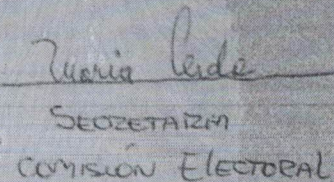 Maria
SECRETARIA
COMISIÓN ELECTORAL